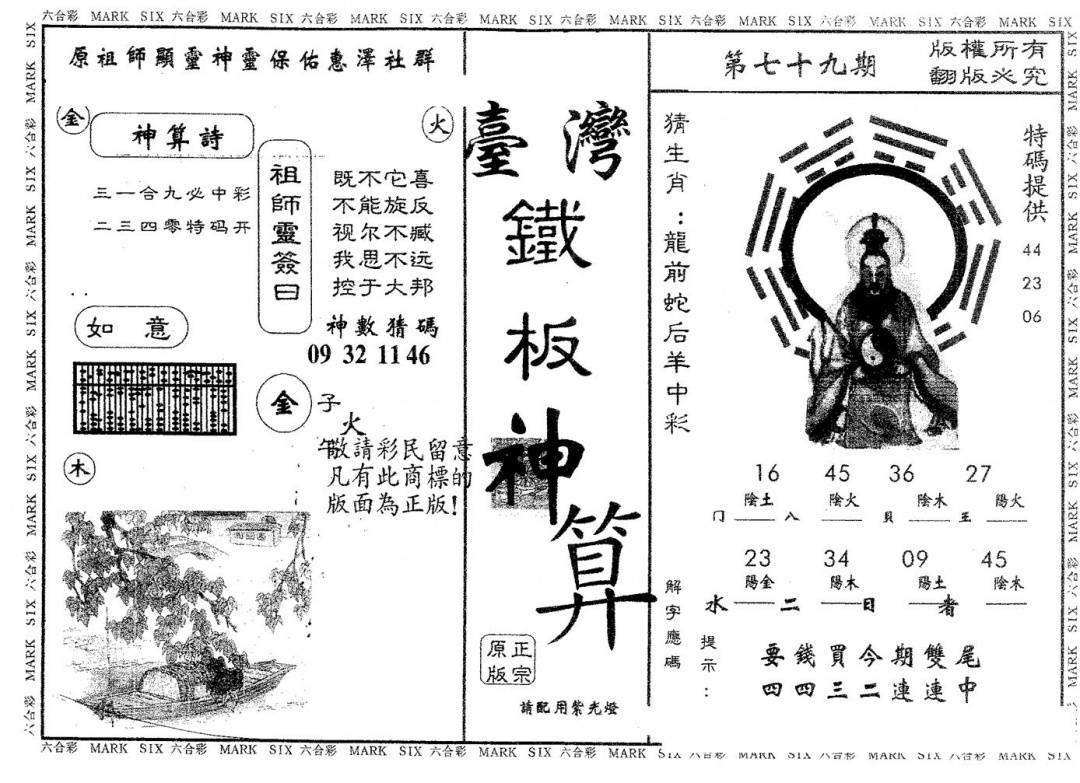 六合彩 MARK SIX 六合彩 MARK SIX 六合彩 MARK SIX 六合彩 MARK SIX 六合彩 MARK SIX 六合彩 MARK SIX 六合彩 MARK SIX 六合彩 MARK SIX
原祖師顯靈神靈保佑惠澤社群
金
火
神算詩
三一合九必中彩
二三四零特码开
祖師靈簽曰
既不它喜
不能旋反
视尔不臧
我思不远
控于大邦
神數猜碼
09 32 11 46
如意
金
子
火
午
敬請彩民留意
凡有此商標的
版面為正版!
木
臺灣
鐵
板
神
算
正宗
原版
請配用紫光燈
第七十九期
版權所有
翻版必究
猜生肖：龍前蛇后羊中彩
特碼提供
44
23
06
16 45 36 27
陰土 陰火 陰木 陽火
门 八 貝 王
23 34 09 45
陽金 陽木 陽土 陰水
水 二 日 者
解字應碼
提示：
要錢買今期雙尾
四四三二連連中
六合彩 MARK SIX 六合彩 MARK SIX 六合彩 MARK SIX 六合彩 MARK SIX 六合彩 MARK SIX 六合彩 MARK SIX 六合彩 MARK SIX 六合彩 MARK SIX